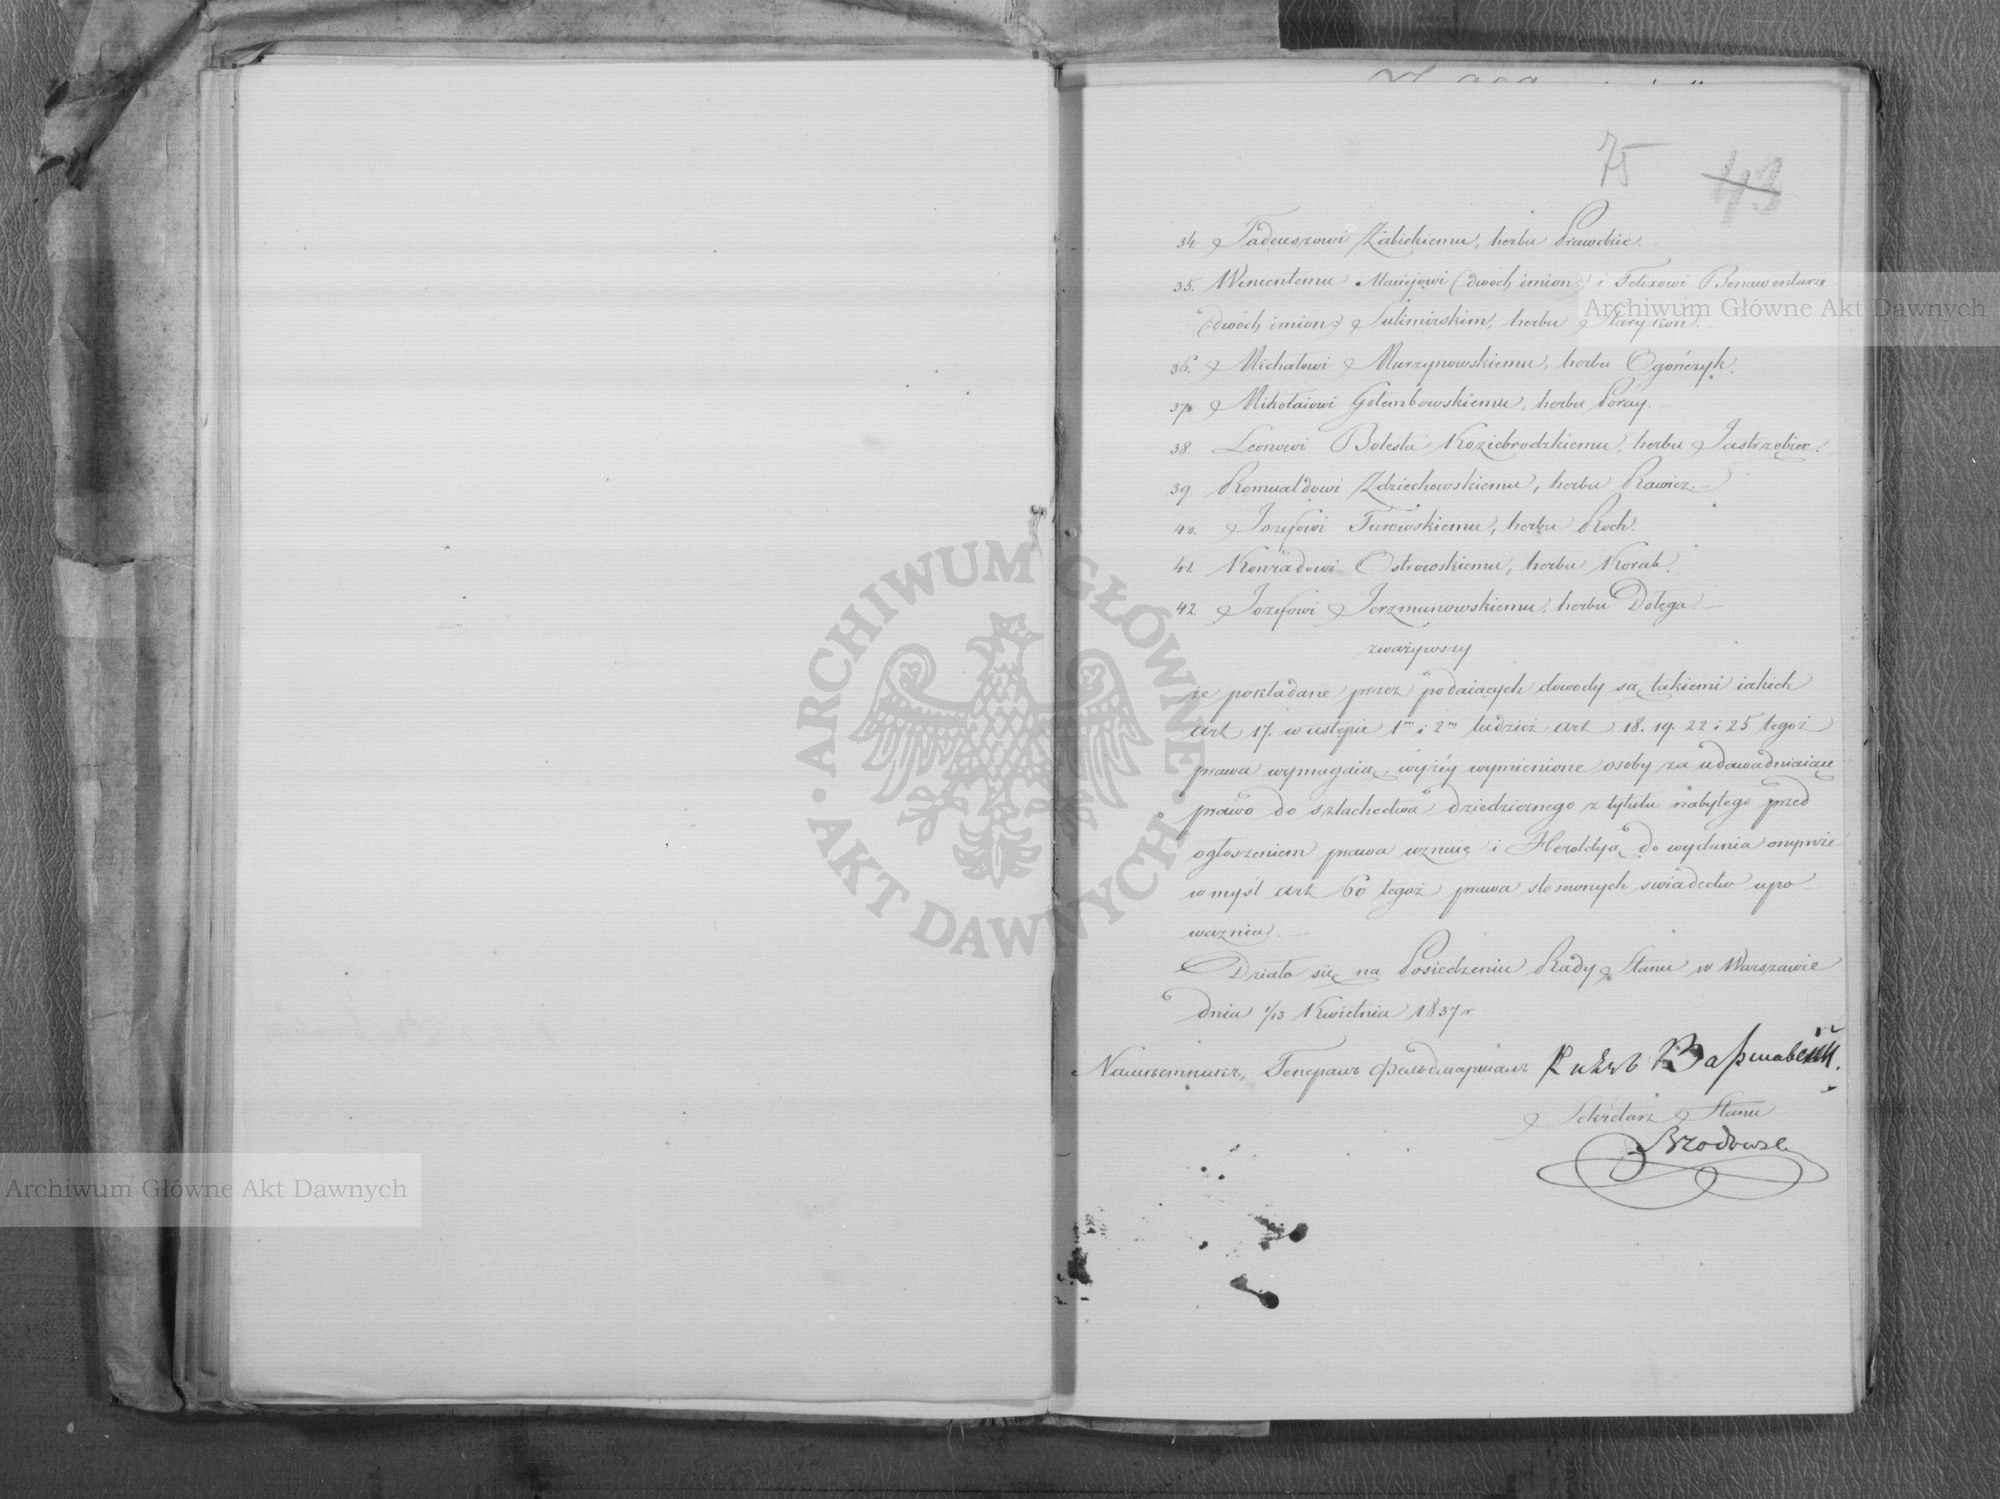 75 43
34. Tadeuszowi Żabickiemu, herbu Prawdzic.
35. Wincentemu Maciejowi (:dwóch imion:) i Felixowi Bonawenturze
(:dwóch imion:) Sulimirskim, herbu Starykoń.
36. Michałowi Murzynowskiemu, herbu Ogończyk.
37. Mikołaiowi Gołembowskiemu, herbu Poray.
38. Leonowi Bolesta Koziebrodzkiemu, herbu Jastrzębiec.
39. Romualdowi Zdziechowskiemu, herbu Rawicz.
40. Jozefowi Turowskiemu, herbu Roch.
41. Konradowi Ostrowskiemu, herbu Korab.
42. Jozefowi Jerzmanowskiemu, herbu Dołęga.
zważywszy
że pokładane przez podaiących dowody są takiemi iakich
art 17. w ustępie 1m i 2m tudzież art 18. 19. 22 i 25 tegoż
prawa wymagaią, wyżéy wymienione osoby za udowadniaiące
prawo do szlachectwa dziedzicznego z tytułu nabytego przed
ogłoszeniem prawa uznaie i Heroldyą do wydania onymże
w myśl art 60 tegoż prawa stosownych swiadectw upo-
ważnia.
Działo się na Posiedzeniu Rady Stanu w Warszawie
dnia 1/13 Kwietnia 1837 r.
Намѣстникъ, Генералъ Фельдмаршалъ Князь Варшавскій.
Sekretarz Stanu
Brodowski
Archiwum Główne Akt Dawnych
ARCHIWUM GŁÓWNE · AKT DAWNYCH ·
Archiwum Główne Akt Dawnych